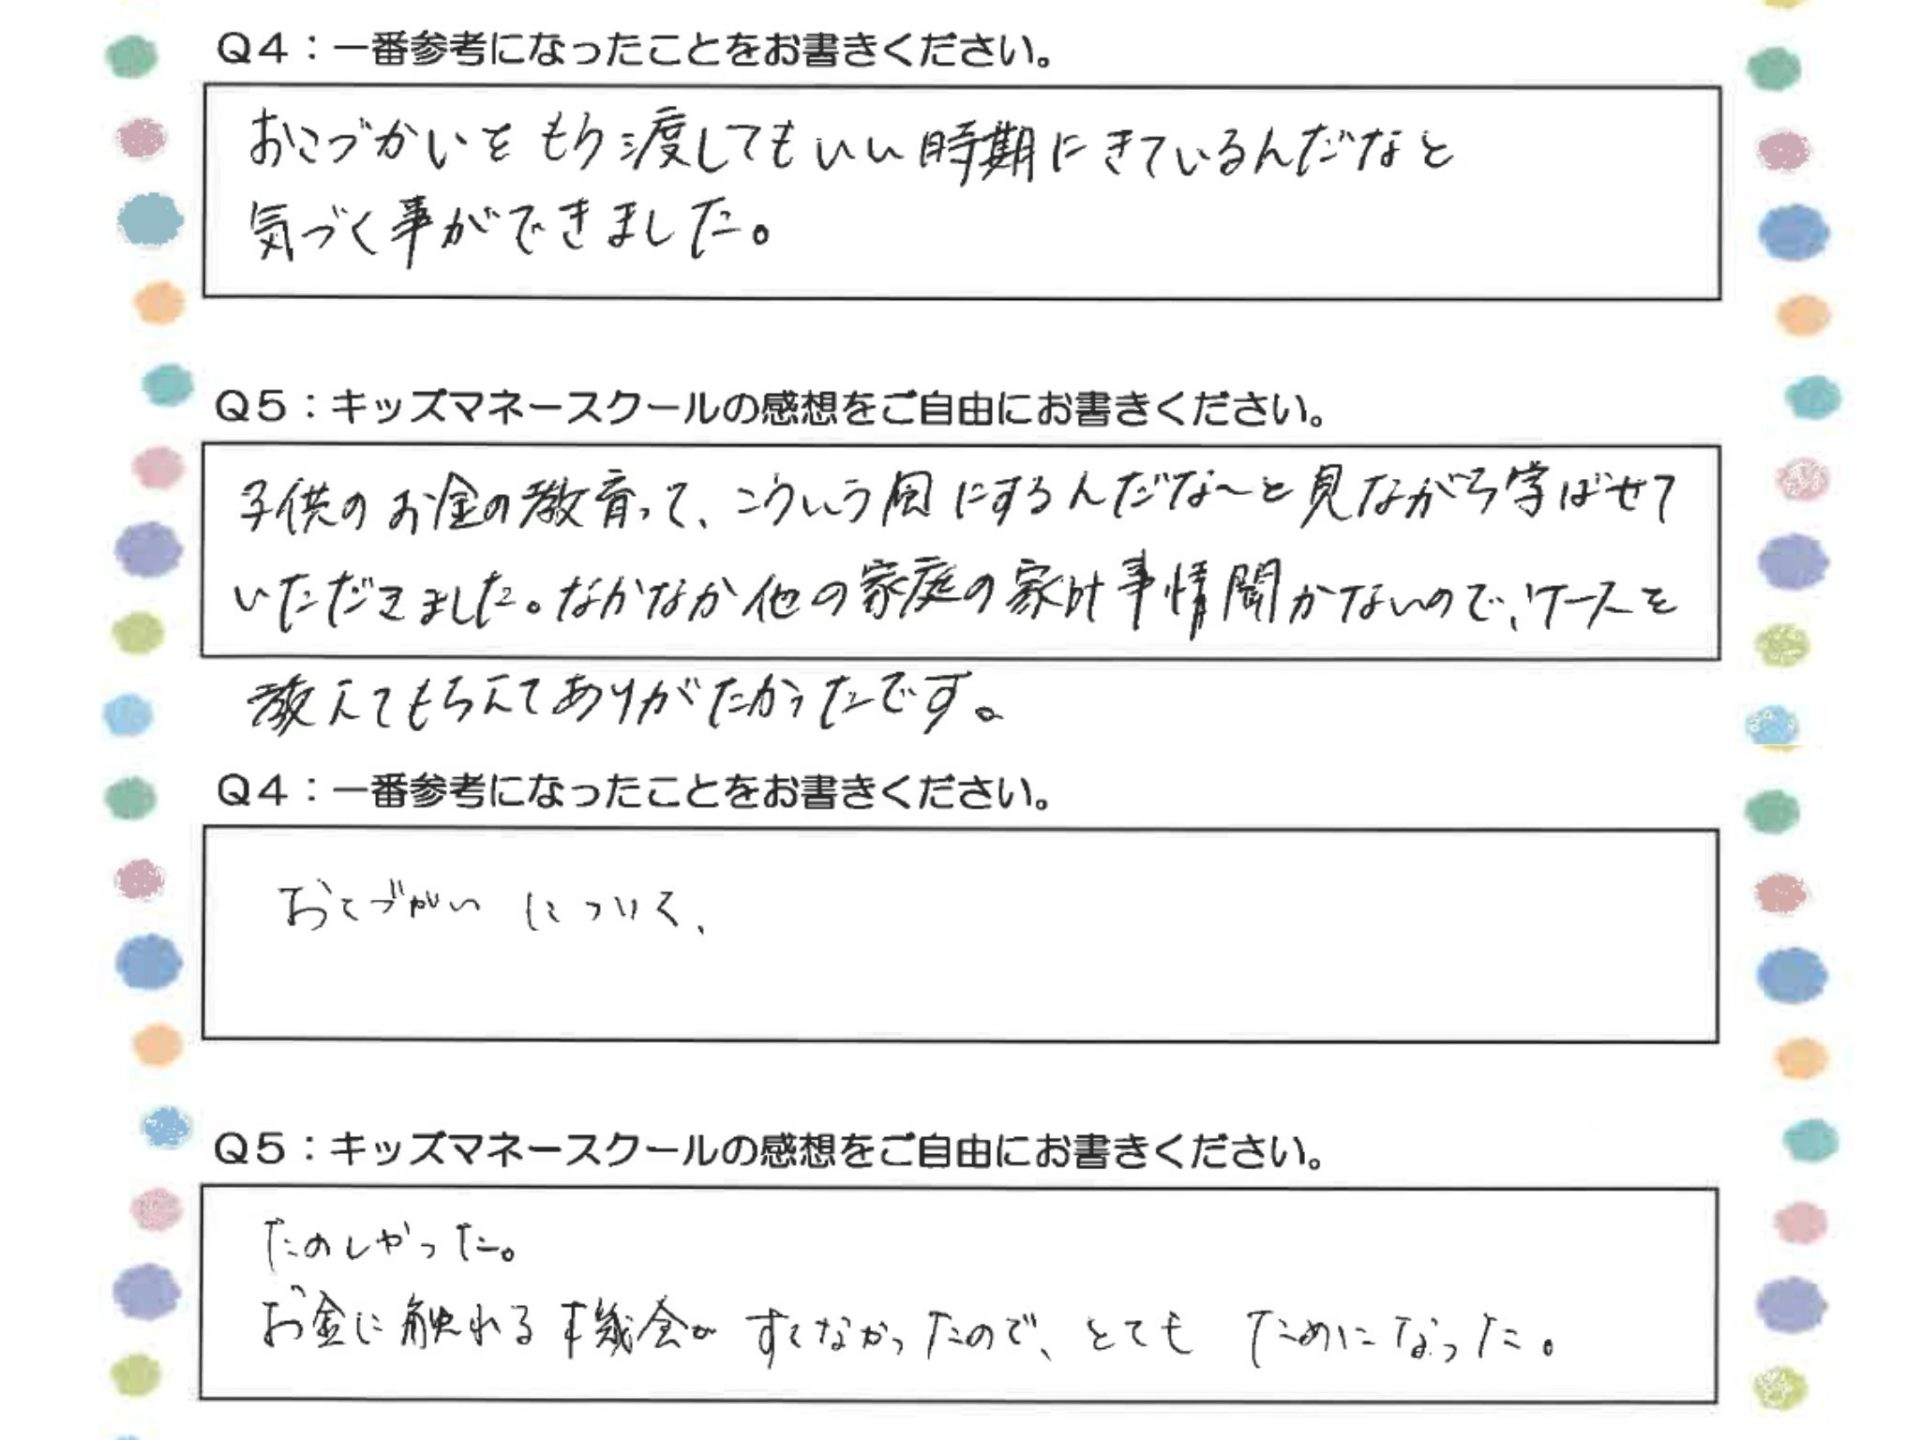 Q4：一番参考になったことをお書きください。
おこづかいをもう渡してもいい時期にきているんだなと
気づく事ができました。
Q5：キッズマネースクールの感想をご自由にお書きください。
子供のお金の教育って、こういう風にするんだな〜と見ながら学ばせて
いただきました。なかなか他の家庭の家計事情聞かないので、ケースを
教えてもらえてありがたかったです。
Q4：一番参考になったことをお書きください。
おこづかいについて、
Q5：キッズマネースクールの感想をご自由にお書きください。
たのしかった。
お金に触れる機会がすくなかったので、とても ためになった。